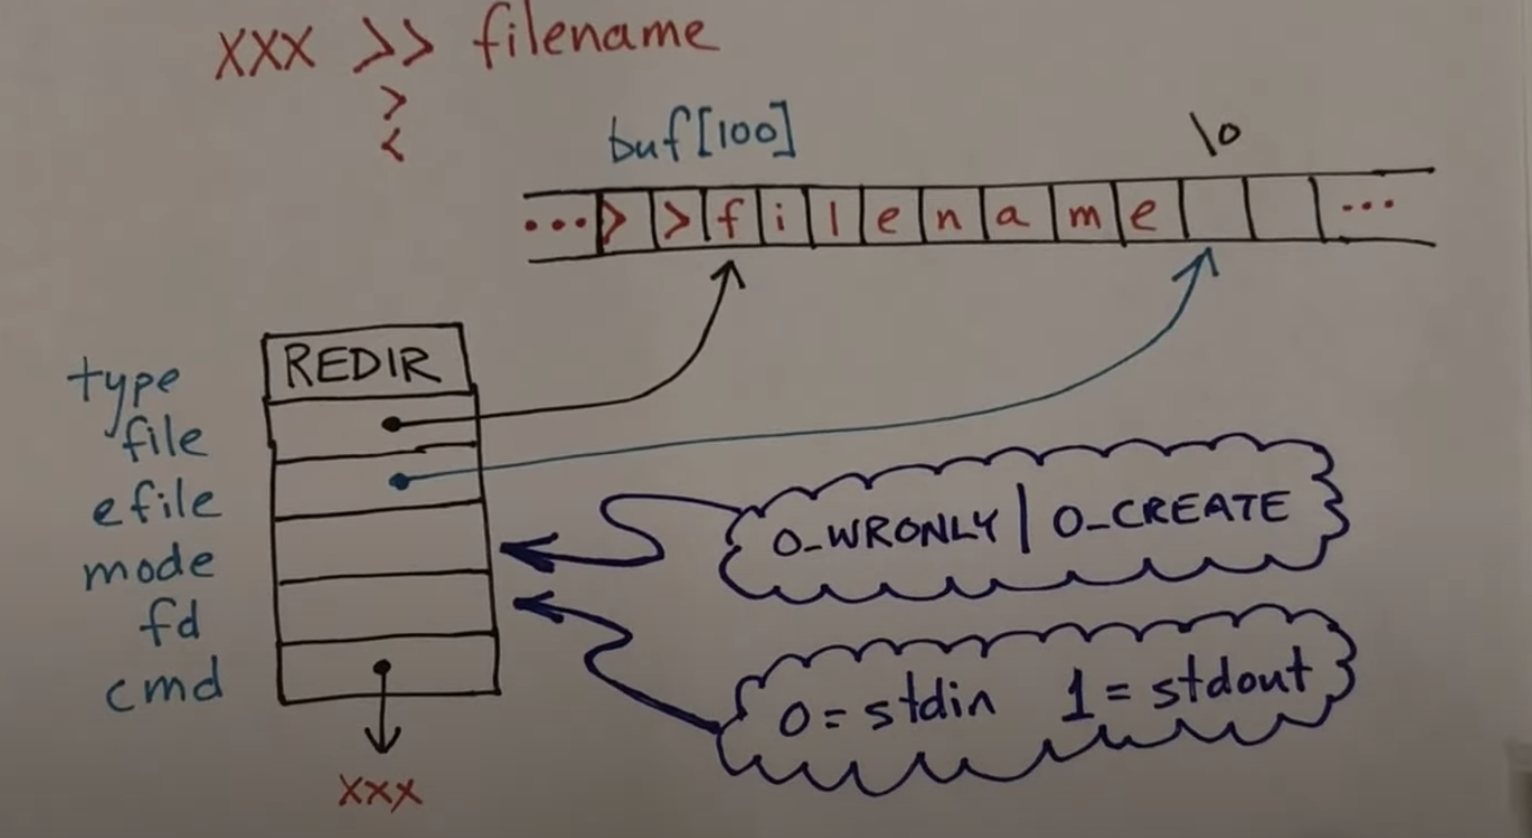 xxx >> filename
>
<
buf[100]
\0
...>>filename...
REDIR
type
file
efile
mode
fd
cmd
O_WRONLY | O_CREATE
0 = stdin 1 = stdout
xxx